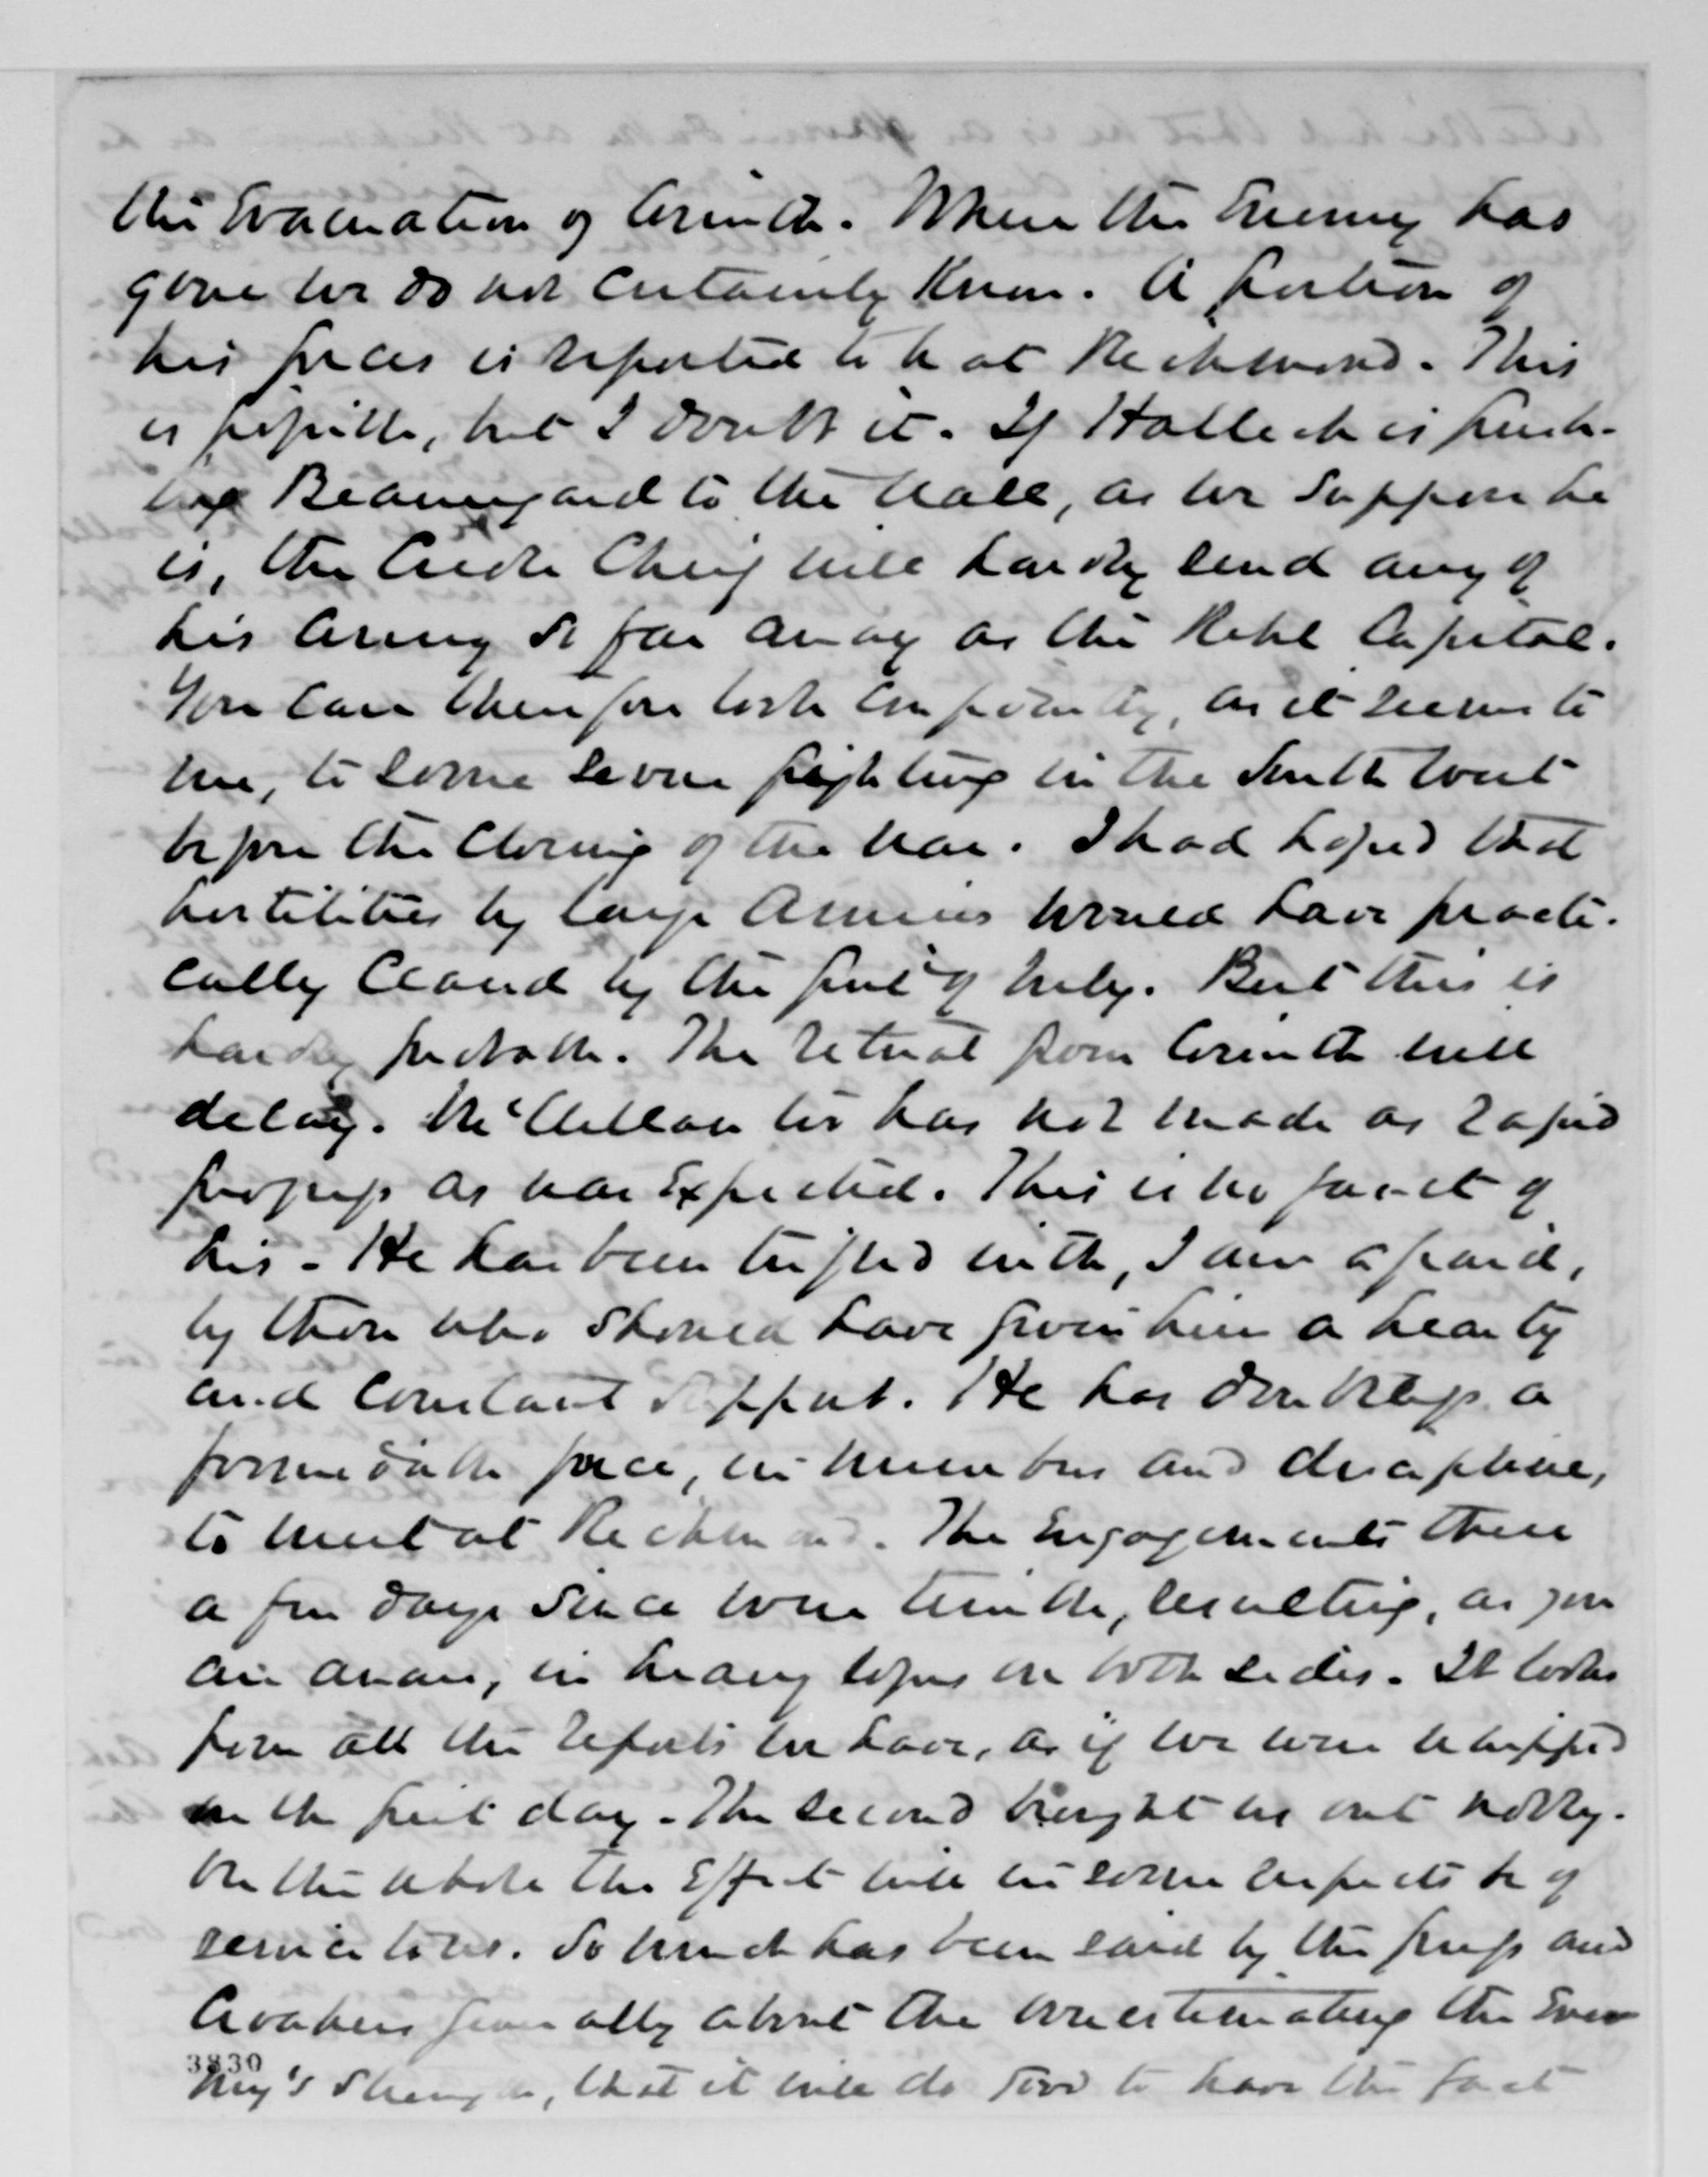 the Evacuation of Corinth. Where the Enemy has
gone we do not certainly know. A portion of
his forces is reported to be at Richmond. This
is possible, but I doubt it. If Halleck is push-
ing Beauregard to the wall, as we suppose he
is, the Creole Chief will hardly send any of
his Army so far away as the Rebel Capital.
You can therefore look confidently, as it seems to
me, to some severe fighting in the South West
before the closing of the war. I had hoped that
hostilities by large Armies would have practi-
cally ceased by the first of July. But this is
hardly probable. The retreat from Corinth will
delay. McClellan too has not made as rapid
progress as was Expected. This is no fault of
his. He has been trifled with, I am afraid,
by those who should have given him a hearty
and constant support. He has doubtless a
formidable force, in numbers and discipline,
to meet at Richmond. The Engagements there
a few days since were terrible, resulting, as you
are aware, in heavy losses on both sides. It looks
from all the reports we have, as if we were whipped
on the first day. The second brought us out nobly.
On the whole the Effect will in some respects be of
service to us. So much has been said by the press and
Croakers generally about the overestimating the Ene-
3830
my's strength, that it will do good to have the fact